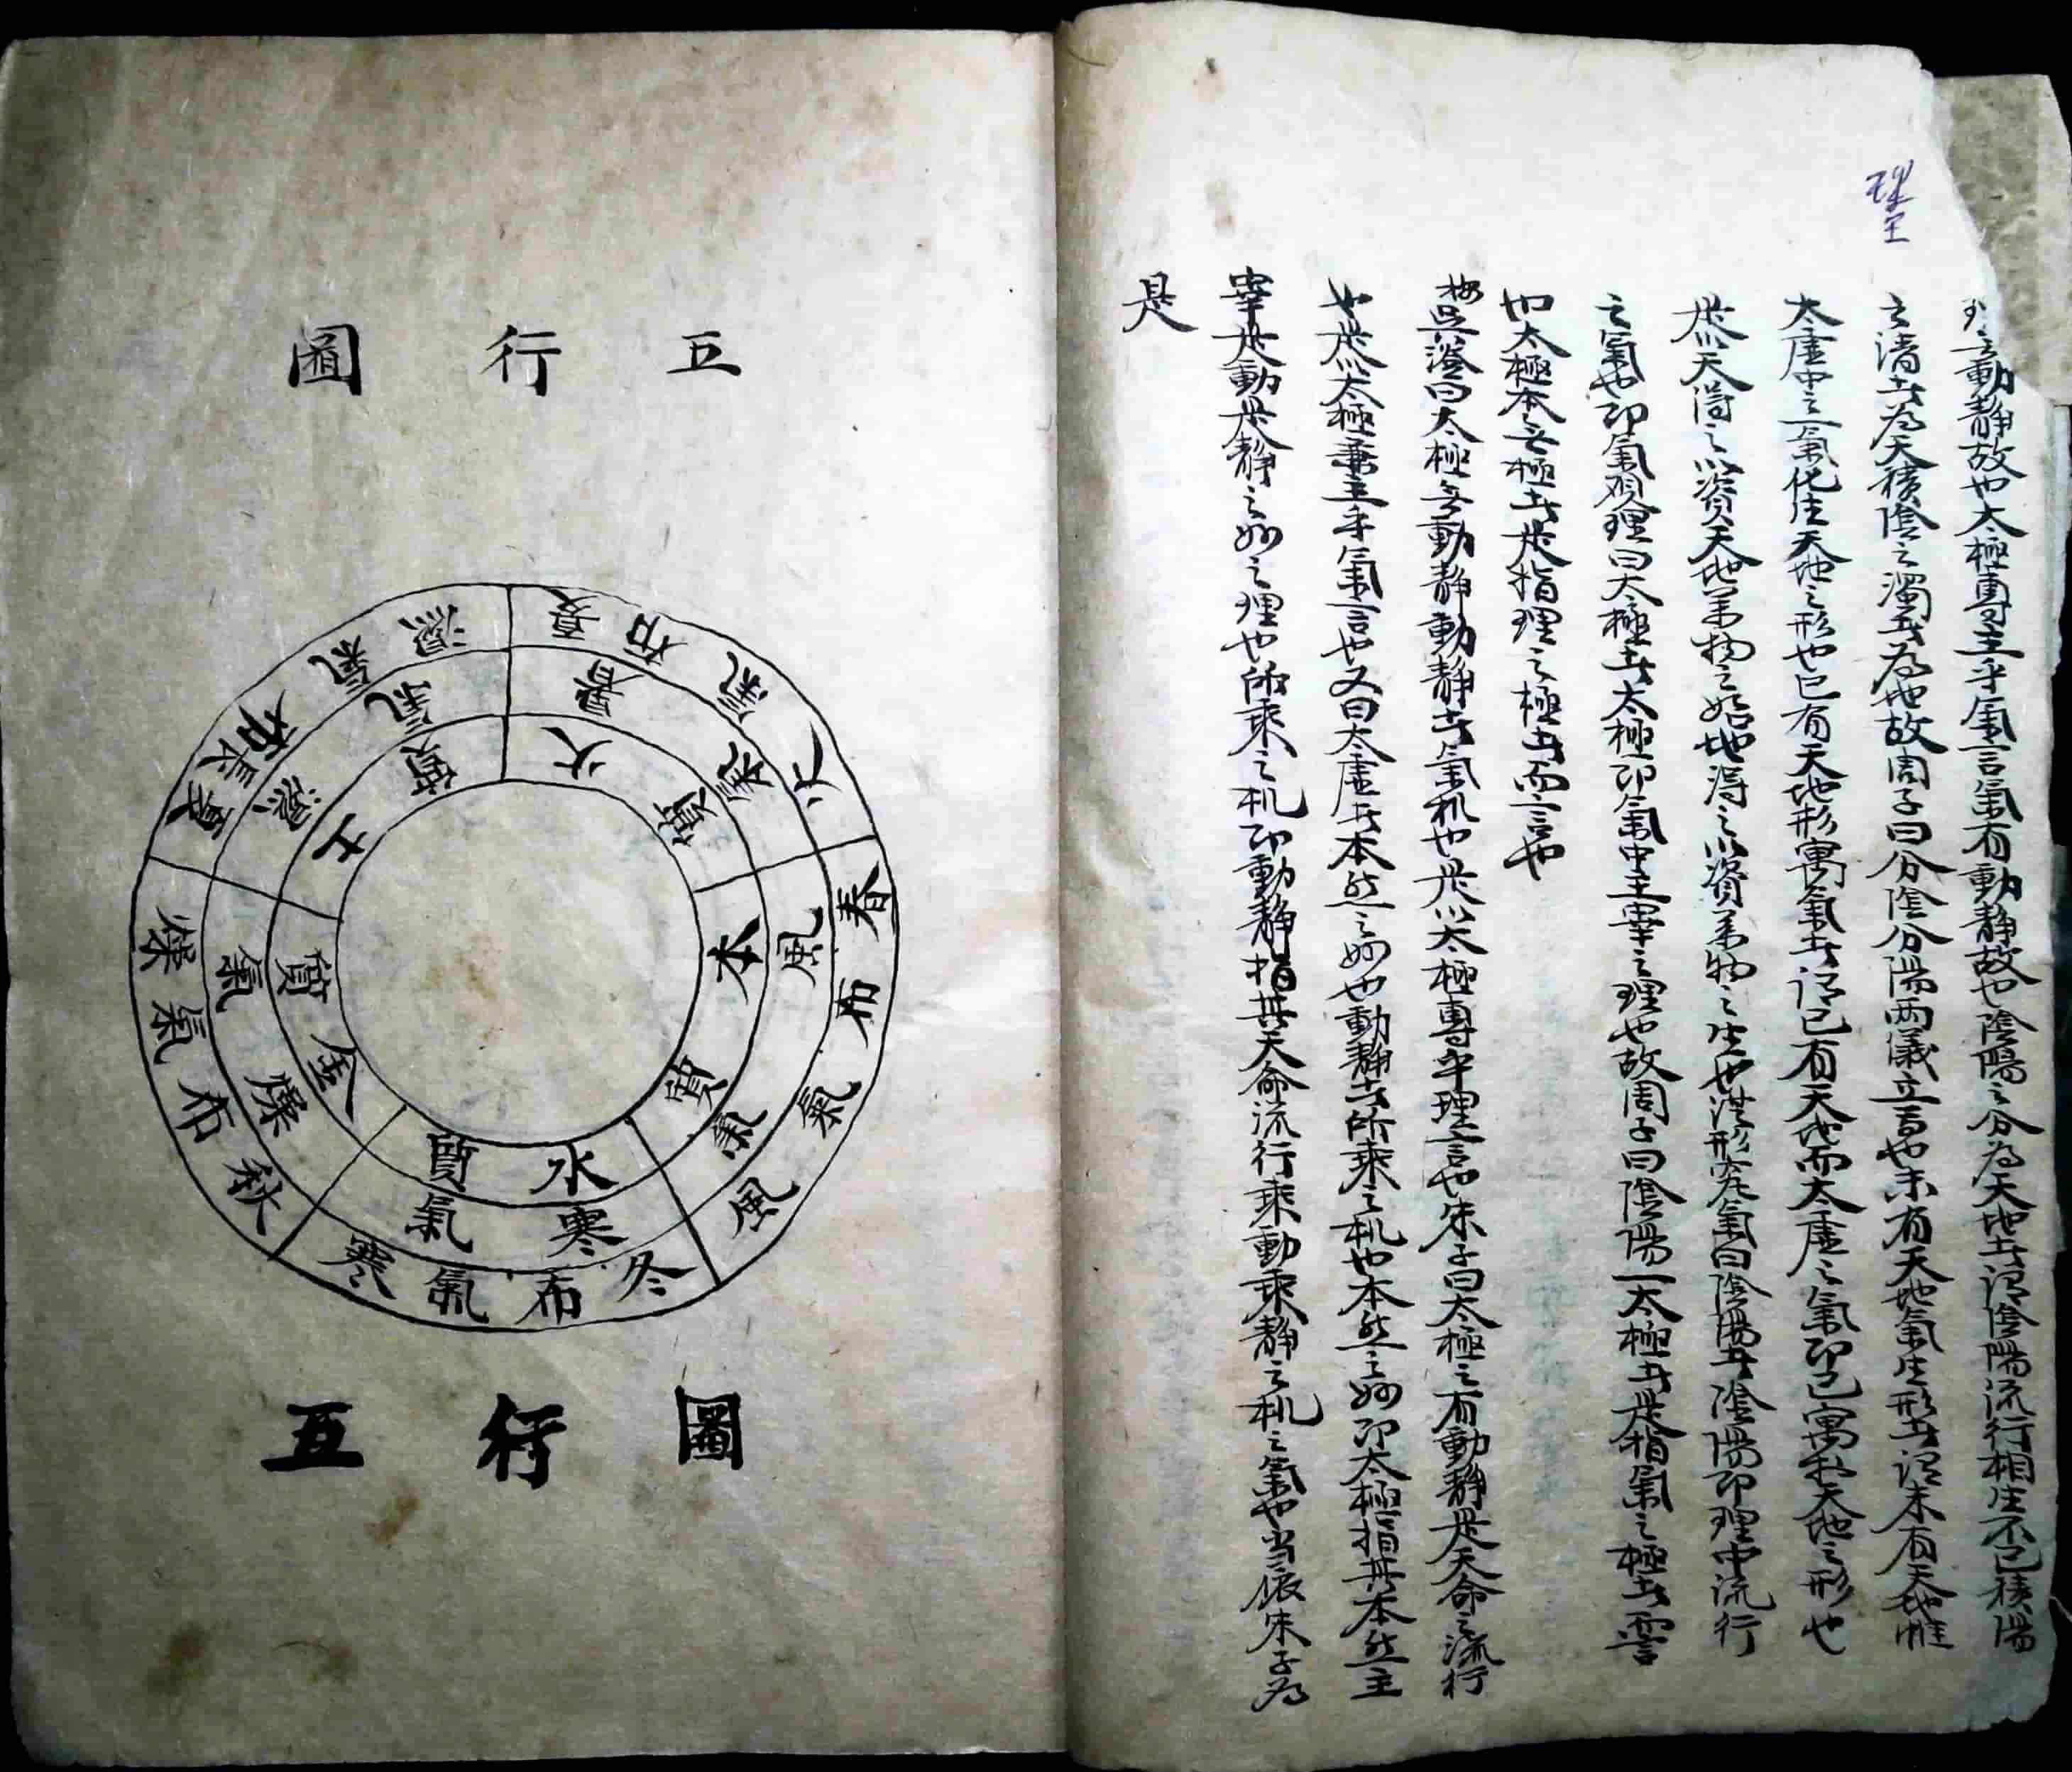 理之動靜故也太極專主乎氣言氣有動靜故也陰陽之分為天地者謂陰陽流行相生不已積陽
之清者為天積陰之濁者為地故周子曰分陰分陽兩儀立焉也未有天地氣生形者謂未有天地惟
太虛中之一氣化生天地之形也已有天地形寓氣者謂已有天地而太虛之氣即已寓於天地之形也
是以天得之以資天地萬物之始地得之以資萬物之生也洪形究氣曰陰陽者陰陽即理中流行
之氣也即氣观理曰太極者太極即氣中主宰之理也故周子曰陰陽一太極者是指氣之極者而言
也太極本无極者是指理之極者而言也
按吳澄曰太極无動靜動靜者氣机也是以太極專乎理言也朱子曰太極之有動靜是天命之流行
也是以太極兼主乎氣言也又曰太虛者本然之妙也動靜者所乘之机也本然之妙即太極指其本然主
宰是動是靜之妙之理也所乘之机即動靜指其天命流行乘動乘靜之机之氣也当依朱子為
是
五行圖
夏布氣火
暑氣
火質
濕氣布長夏
氣濕
質土
春布氣風
風氣
木質
燥氣布秋
氣燥
質金
冬布氣寒
寒氣
水質
圖行五